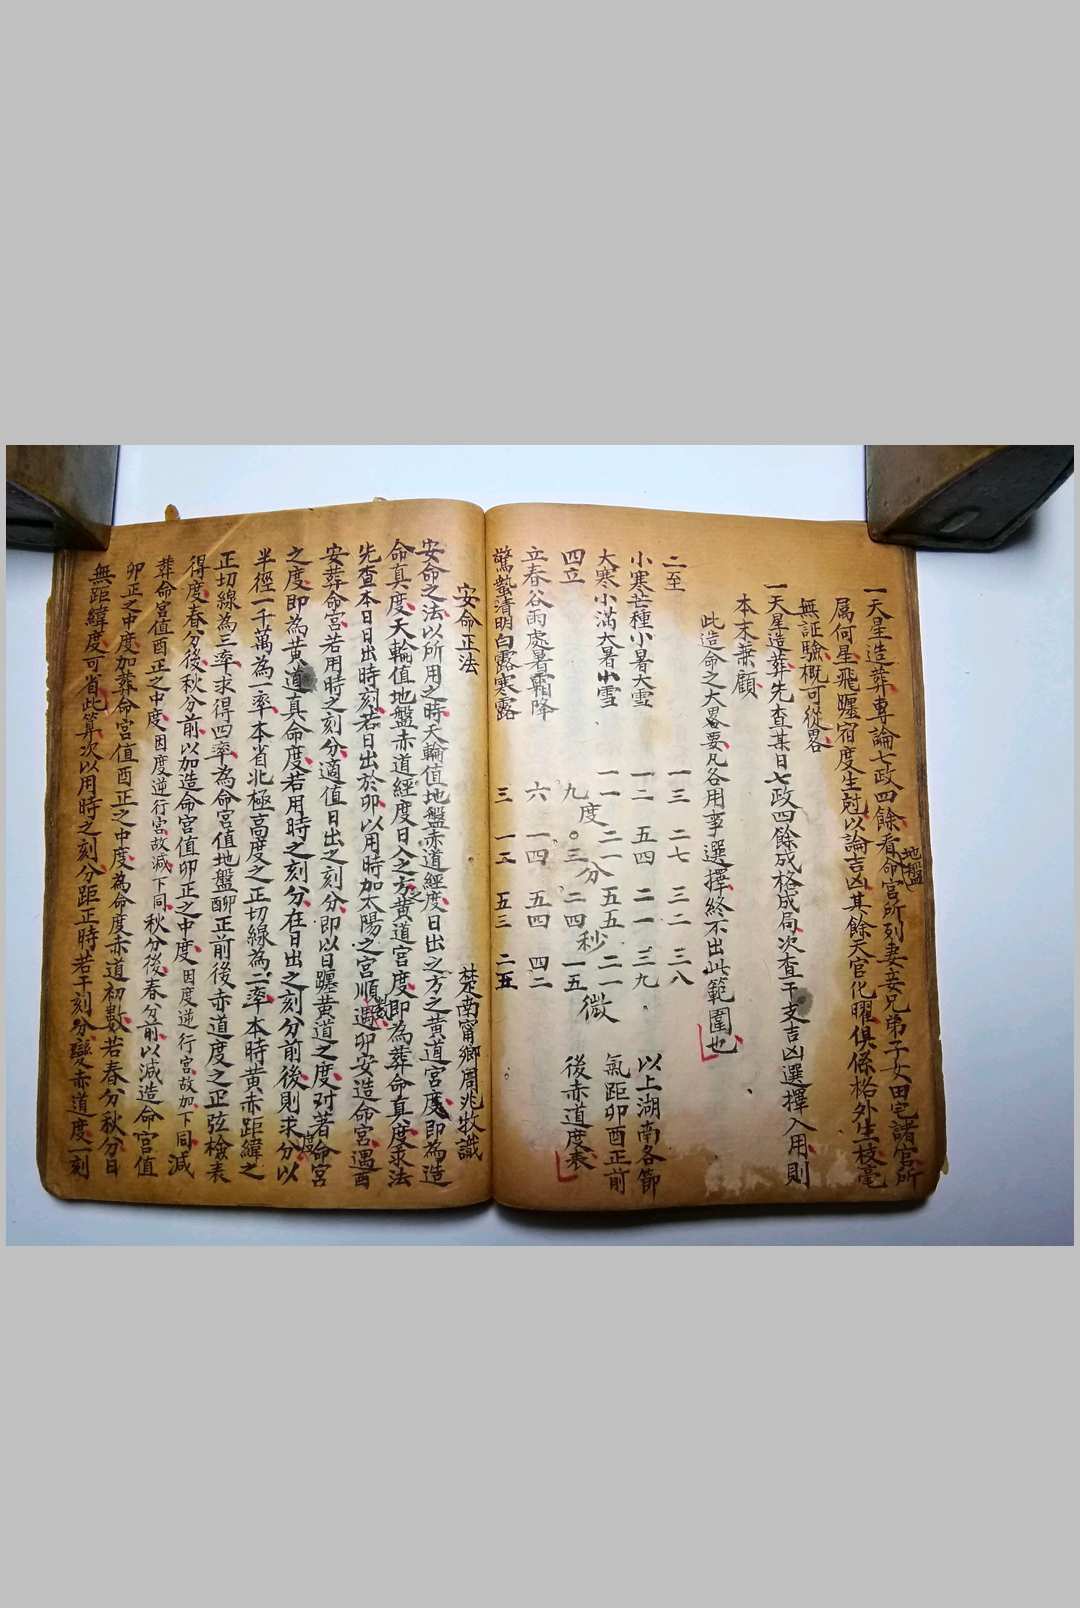 一天星造葬專論七政四餘看命宮所列妻妾兄弟子女田宅諸宮所
地盤
属何星飛躔宿度生尅以論吉凶其餘天官化曜俱係格外生枝毫
無証驗概可從畧
一天星造葬先查某日七政四餘成格成局次查干支吉凶選擇入用則
本末兼顧
此造命之大畧要凡各用事選擇終不出此範圍也
二至 一三 二七 三二 三八
小寒芒種小暑大雪 一二 五四 二一 三九 以上湖南各節
大寒小滿大暑小雪 一一 二一 五五 二一 氣距卯酉正前
四立 九度〇三分二四秒一五微 後赤道度表
立春谷雨處暑霜降 六 一四 五四 四二
驚蟄清明白露寒露 三 一五 五三 二五
安命正法 楚南甯鄉周兆牧識
安命之法以所用之時天輪值地盤赤道經度日出之方之黄道宮度即為造
命真度天輪值地盤赤道經度日入之方黄道宮度即為葬命真度求法
先查本日日出時刻若日出於卯以用時加太陽之宮順數遇卯安造命宮遇酉
安葬命宮若用時之刻分適值日出之刻分即以日躔黄道之度对著命宮
之度即為黄道真命度若用時之刻分在日出之刻分前後則求分以
度
半徑一千萬為一率本省北極高度之正切線為二率本時黄赤距緯之
正切線為三率求得四率為命宮值地盤酉卯正前後赤道度之正弦檢表
得度春分後秋分前以加造命宮值卯正之中度因度逆行宮故減下同秋分後春分前以減造命宮值
葬命宮值酉正之中度因度逆行宮故加下同減
卯正之中度加葬命宮值酉正之中度為命度赤道初數若春分秋分日
無距緯度可省此算次以用時之刻分距正時若干刻分變赤道度一刻